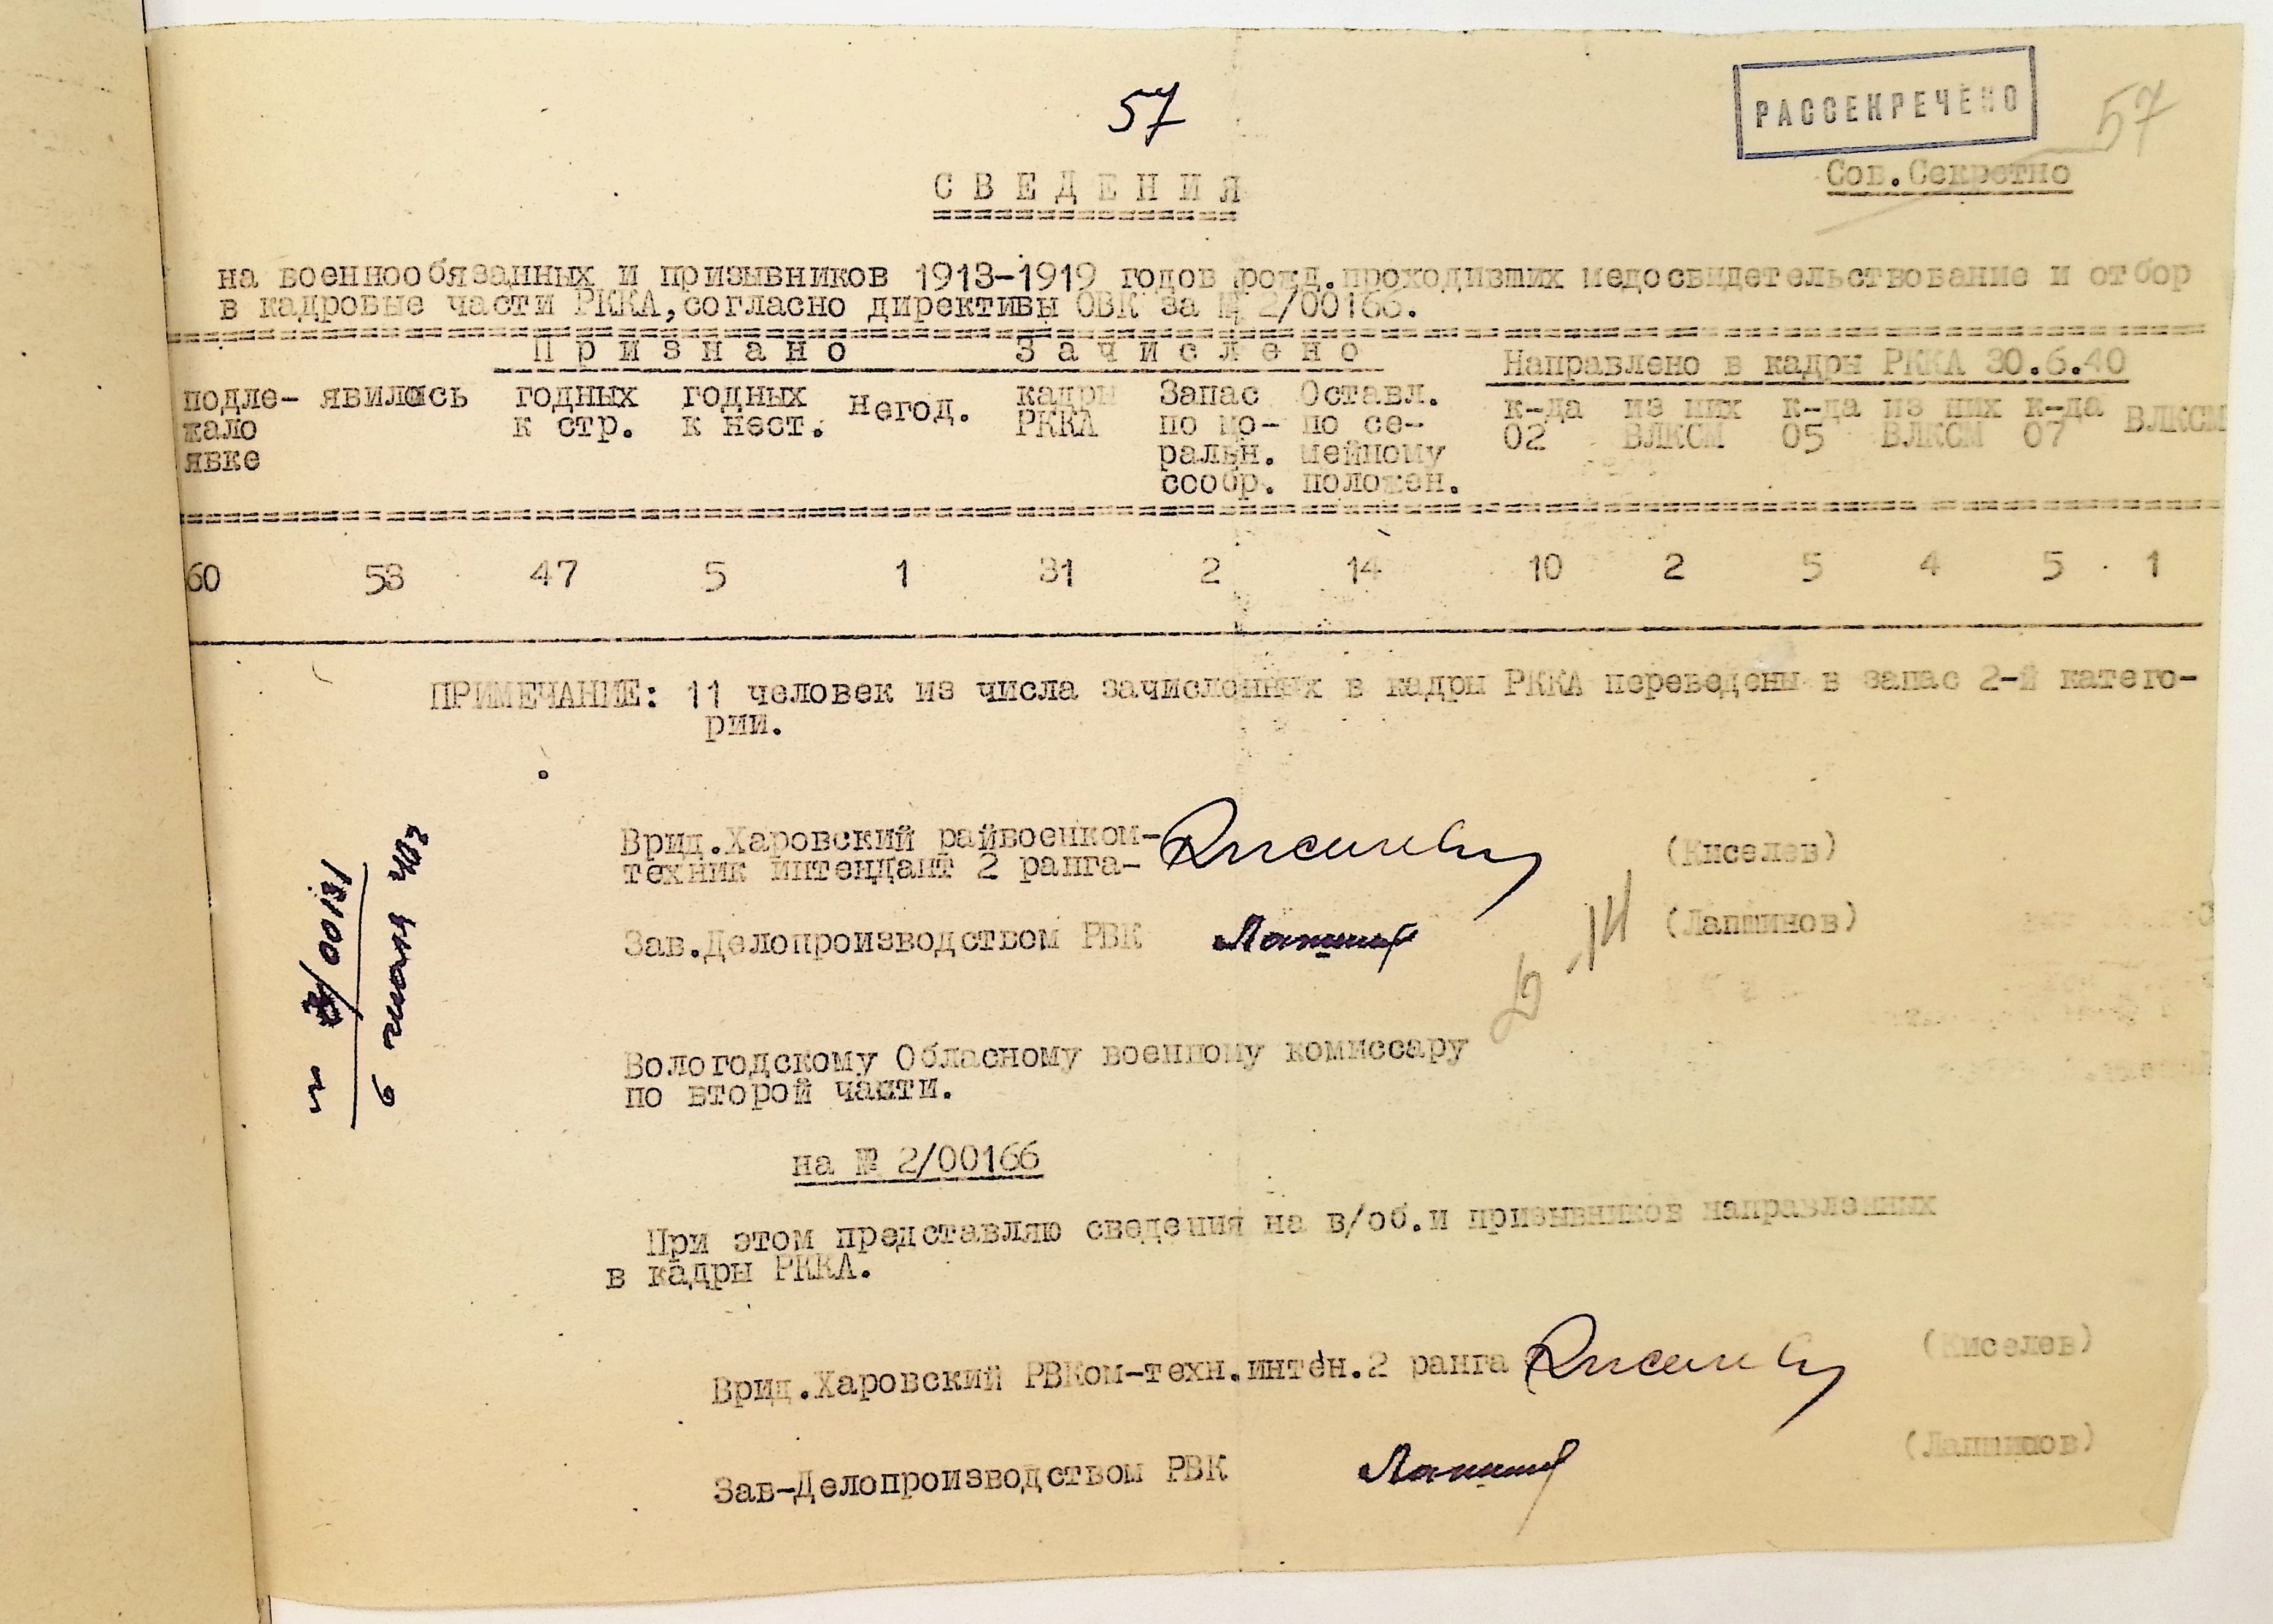 57
РАССЕКРЕЧЕНО
57
Сов.Секретно
СВЕДЕНИЯ
на военнообязанных и призывников 1913-1919 годов рожд.проходивших медосвидетельствование и отбор
в кадровые части РККА,согласно директивы ОВК за № 2/00166.
Признано Зачислено Направлено в кадры РККА 30.6.40
подле- явилось годных годных негод. кадры Запас Оставл. к-да из них к-да из них к-да ВЛКСМ
жало к стр. к нест. РККА по мо- по се- 02 ВЛКСМ 05 ВЛКСМ 07
явке ральн. мейному
сообр. положен.
60 53 47 5 1 31 2 14 10 2 5 4 5 1
ПРИМЕЧАНИЕ: 11 человек из числа зачисленных в кадры РККА переведены в запас 2-й катего-
рии.
Врид.Харовский райвоенком-
техник интендант 2 ранга- (Киселев)
Зав.Делопроизводством РВК (Лапшинов)
6 июля 40г
Вологодскому Обласному военному комиссару
по второй части.
на № 2/00166
При этом представляю сведения на в/об.и призывников направленных
в кадры РККА.
Врид.Харовский РВКом-техн.интен.2 ранга (Киселев)
Зав-Делопроизводством РВК (Лапшинов)